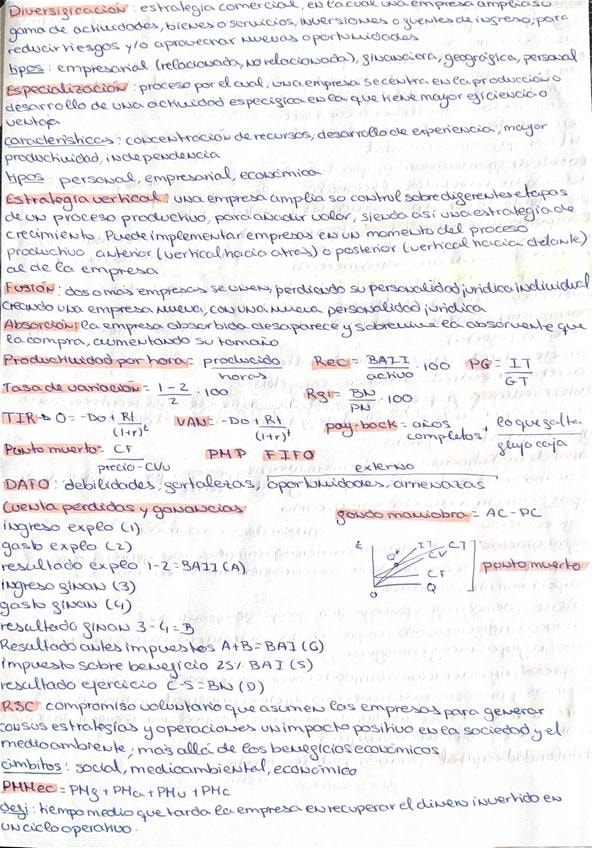 Diversificación: estrategia comercial, en la cual una empresa amplia su
gama de actividades, bienes o servicios, inversiones o fuentes de ingreso, para
reducir riesgos y/o aprovechar nuevas oportunidades
tipos: empresarial (relacionada, no relacionada), financiera, geográfica, personal
Especialización: proceso por el cual, una empresa se centra en la producción o
desarrollo de una actividad específica en la que tiene mayor eficiencia o
ventaja
características: concentración de recursos, desarrollo de experiencia, mayor
productividad, independencia
tipos: personal, empresarial, económica
Estrategia vertical: una empresa amplia su control sobre diferentes etapas
de un proceso productivo, para añadir valor, siendo así una estrategia de
crecimiento. Puede implementar empresas en un momento del proceso
productivo anterior (vertical hacia atrás) o posterior (vertical hacia delante)
al de la empresa
Fusión: dos o más empresas se unen, perdiendo su personalidad jurídica individual
creando una empresa nueva, con una nueva personalidad jurídica
Absorción: la empresa absorbida desaparece y sobrevive la absorvente que
la compra, aumentando su tamaño
Productividad por hora = producido / horas Rec = BAII / activo · 100 PG = IT / GT
Tasa de variación = 1-2 / 2 · 100 Rfi = BN / PN · 100
TIR → 0 = -Do + Rt / (1+r)t VAN = -Do + Rt / (1+r)t pay-back = años completos + lo que falta / flujo caja
Punto muerto = CF / precio - CVu PMP FIFO
externo
DAFO: debilidades, fortalezas, oportunidades, amenazas
Cuenta perdidas y ganancias fondo maniobra = AC - PC
ingreso explo (1)
gasto explo (2)
£ IT CT
CV
Q*
CF
0 Q
punto muerto
resultado explo 1-2 = BAII (A)
ingreso finan (3)
gasto finan (4)
resultado finan 3-4 = B
Resultado antes impuestos A+B = BAI (C)
impuesto sobre beneficio 25% BAI (5)
resultado ejercicio C-5 = BN (D)
RSC: compromiso voluntario que asumen las empresas para generar
con sus estrategias y operaciones un impacto positivo en la sociedad y el
medioambiente, más allá de los beneficios económicos
ámbitos: social, medioambiental, económico
PMMec = PMf + PMa + PMv + PMc
defi: tiempo medio que tarda la empresa en recuperar el dinero invertido en
un ciclo operativo.